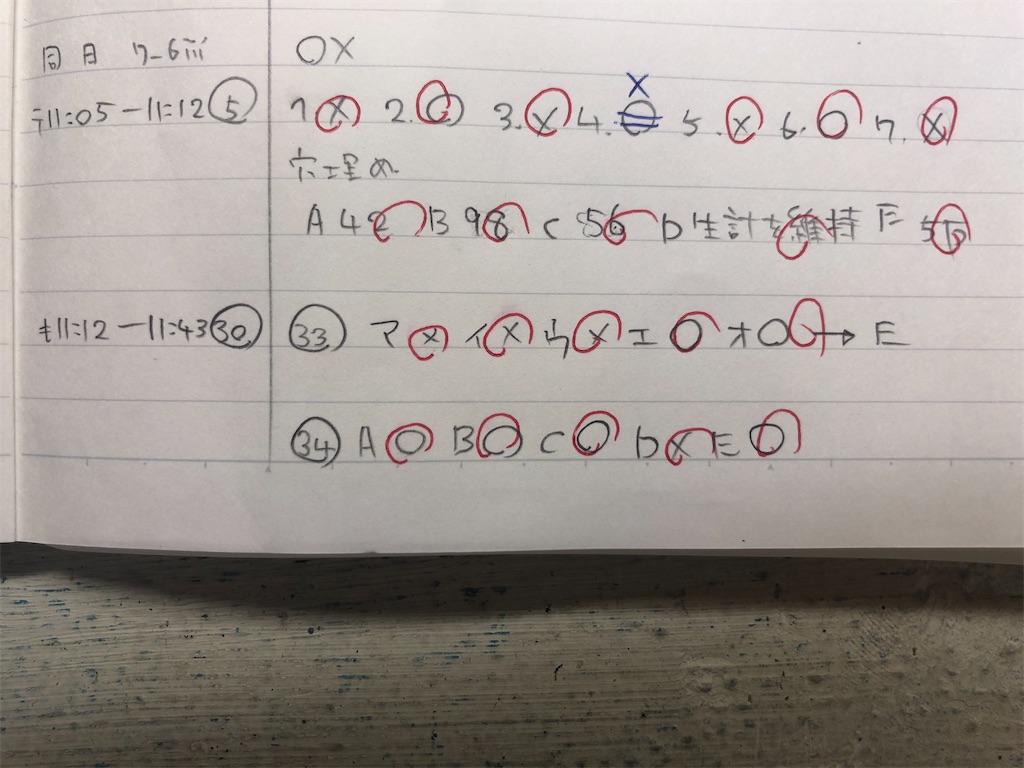 同日 7-6ⅲ ○×
テ11:05-11:12⑤ 1× 2.○ 3.× 4.○ × 5.× 6.○ 7.×
穴埋め
A 42 B 98 C 56 D 生計を維持 E
モ11:12-11:43㉚ ㉝ ア× イ× ウ× エ○ オ○→E
㉞ A○ B○ C○ D× E○